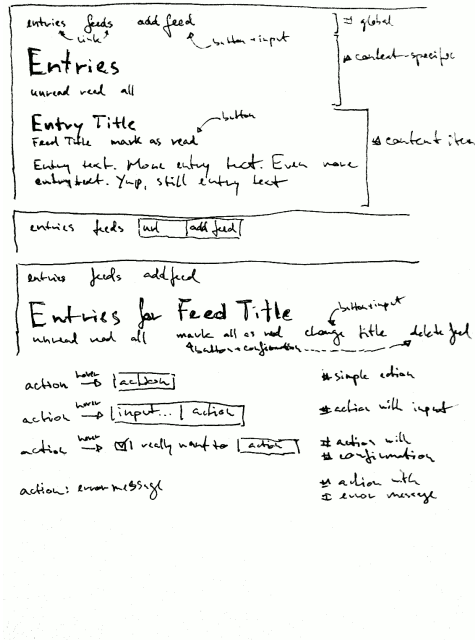 entries feeds add feed # global
link button + input
Entries # content-specific
unread read all
Entry Title button
Feed Title mark as read # content item
Entry text. More entry text. Even more
entry text. Yup, still entry text
entries feeds url add feed
entries feeds add feed
Entries for Feed Title button+input
unread read all mark all as read change title delete feed
button + confirmation
action hover action # simple action
action hover input... action # action with input
action hover I really want to action # action with
# confirmation
action: error message # action with
# error message